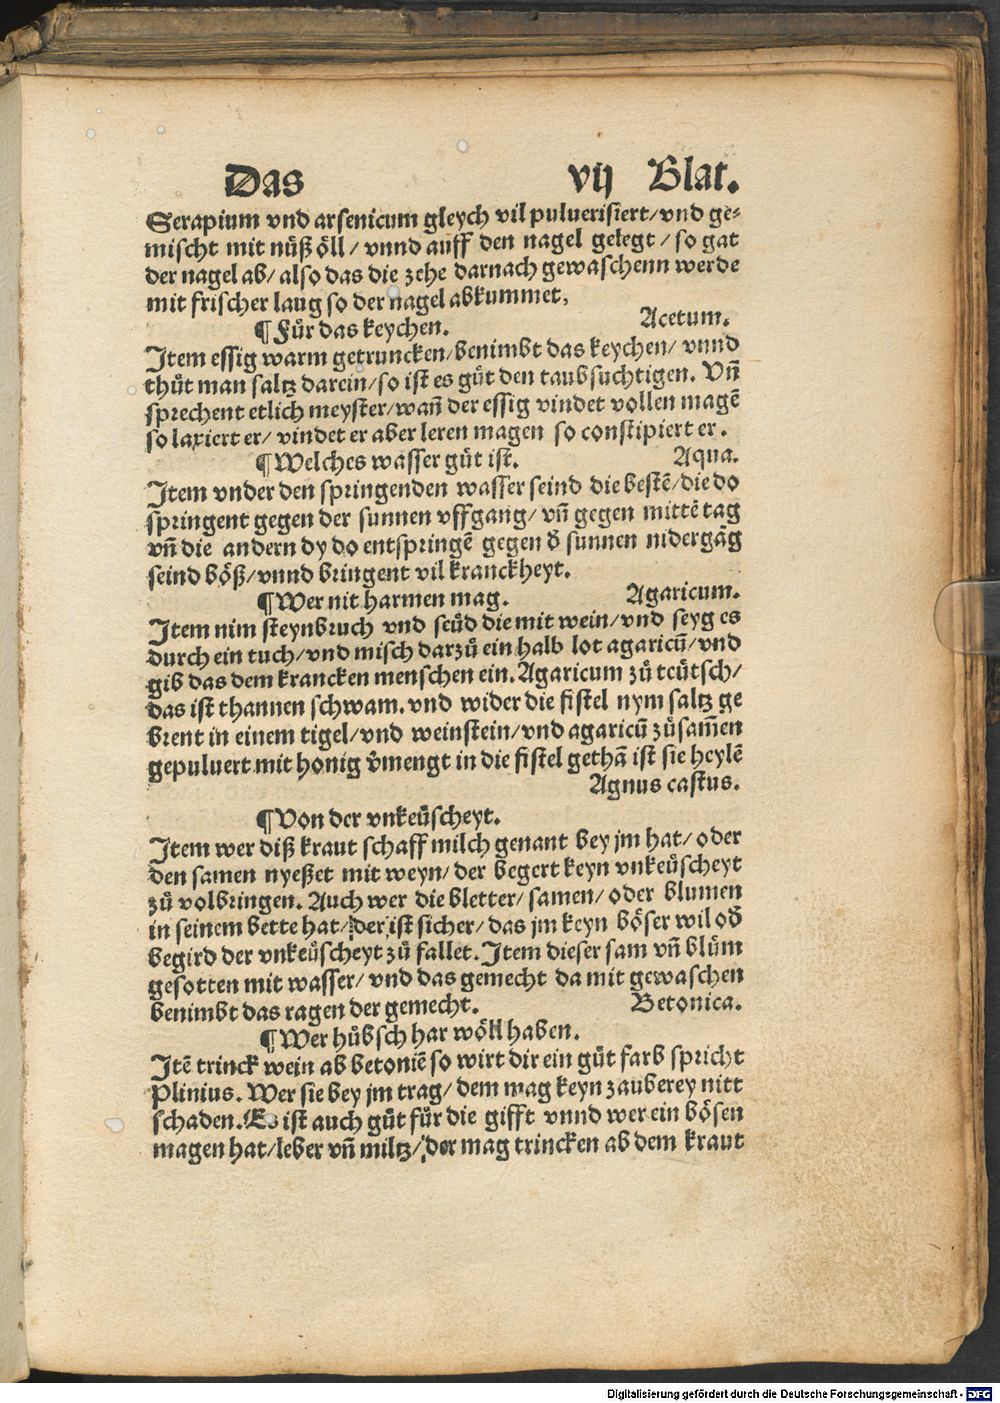 Das vij Blat.
Serapium vnd arsenicum gleych vil puluerisiert/vnd ge⸗
mischt mit nůß öll/ vnnd auff den nagel gelegt/ so gat
der nagel ab/ also das die zehe darnach gewaschenn werde
mit frischer laug so der nagel abkummet,
Acetum.
¶ Für das keychen.
Item essig warm getruncken/benimbt das keychen/ vnnd
thůt man saltz darein/so ist es gůt den taubsuchtigen. Vñ
sprechent etlich meyster/wañ der essig vindet vollen magē
so laxiert er/ vindet er aber leren magen so constipiert er.
¶ Welches wasser gůt ist. Aqua.
Item vnder den springenden wasser seind die bestē/die do
springent gegen der sunnen vffgang/ vñ gegen mittē tag
vñ die andern dy do entspringē gegen ð sunnen nidergāg
seind böß/vnnd bringent vil kranckheyt.
¶ Wer nit harmen mag. Agaricum.
Item nim steynbruch vnd seüd die mit wein/vnd seyg es
durch ein tuch/vnd misch darzů ein halb lot agaricū/vnd
gib das dem krancken menschen ein. Agaricum zů teütsch/
das ist thannen schwam. vnd wider die fistel nym saltz ge
brent in einem tigel/vnd weinstein/vnd agaricū zůsam̄en
gepuluert mit honig v̄mengt in die fistel gethā ist sie heylē
Agnus castus.
¶ Von der vnkeüscheyt.
Item wer diß kraut schaff milch genant bey jm hat/ oder
den samen nyeßet mit weyn/ der begert keyn vnkeüscheyt
zů volbringen. Auch wer die bletter/ samen/ oder blumen
in seinem bette hat/ der ist sicher/ das jm keyn böser wil oð
begird der vnkeüscheyt zů fallet. Item dieser sam vñ blům
gesotten mit wasser/ vnd das gemecht da mit gewaschen
benimbt das ragen der gemecht. Betonica.
¶ Wer hübsch har wöll haben.
Itē trinck wein ab betoniē so wirt dir ein gůt farb spricht
Plinius. Wer sie bey jm trag/ dem mag keyn zauberey nitt
schaden. Es ist auch gůt für die gifft vnnd wer ein bösen
magen hat/leber vñ miltz/ der mag trincken ab dem kraut
Digitalisierung gefördert durch die Deutsche Forschungsgemeinschaft - DFG